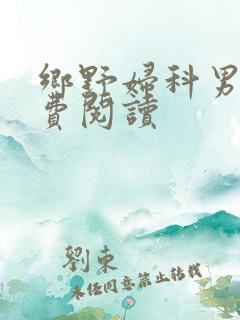 鄉野婦科男
費閱讀
劉東
未經同意禁止轉載